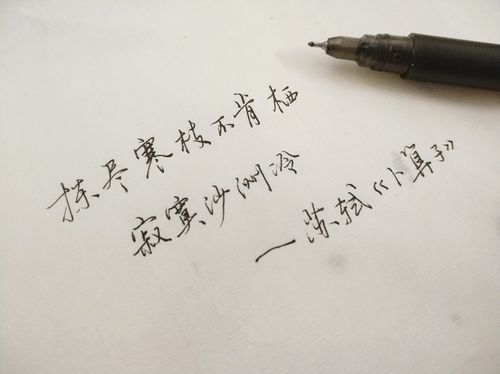 拣尽寒枝不肯栖
寂寞沙洲冷
—苏轼《卜算子》